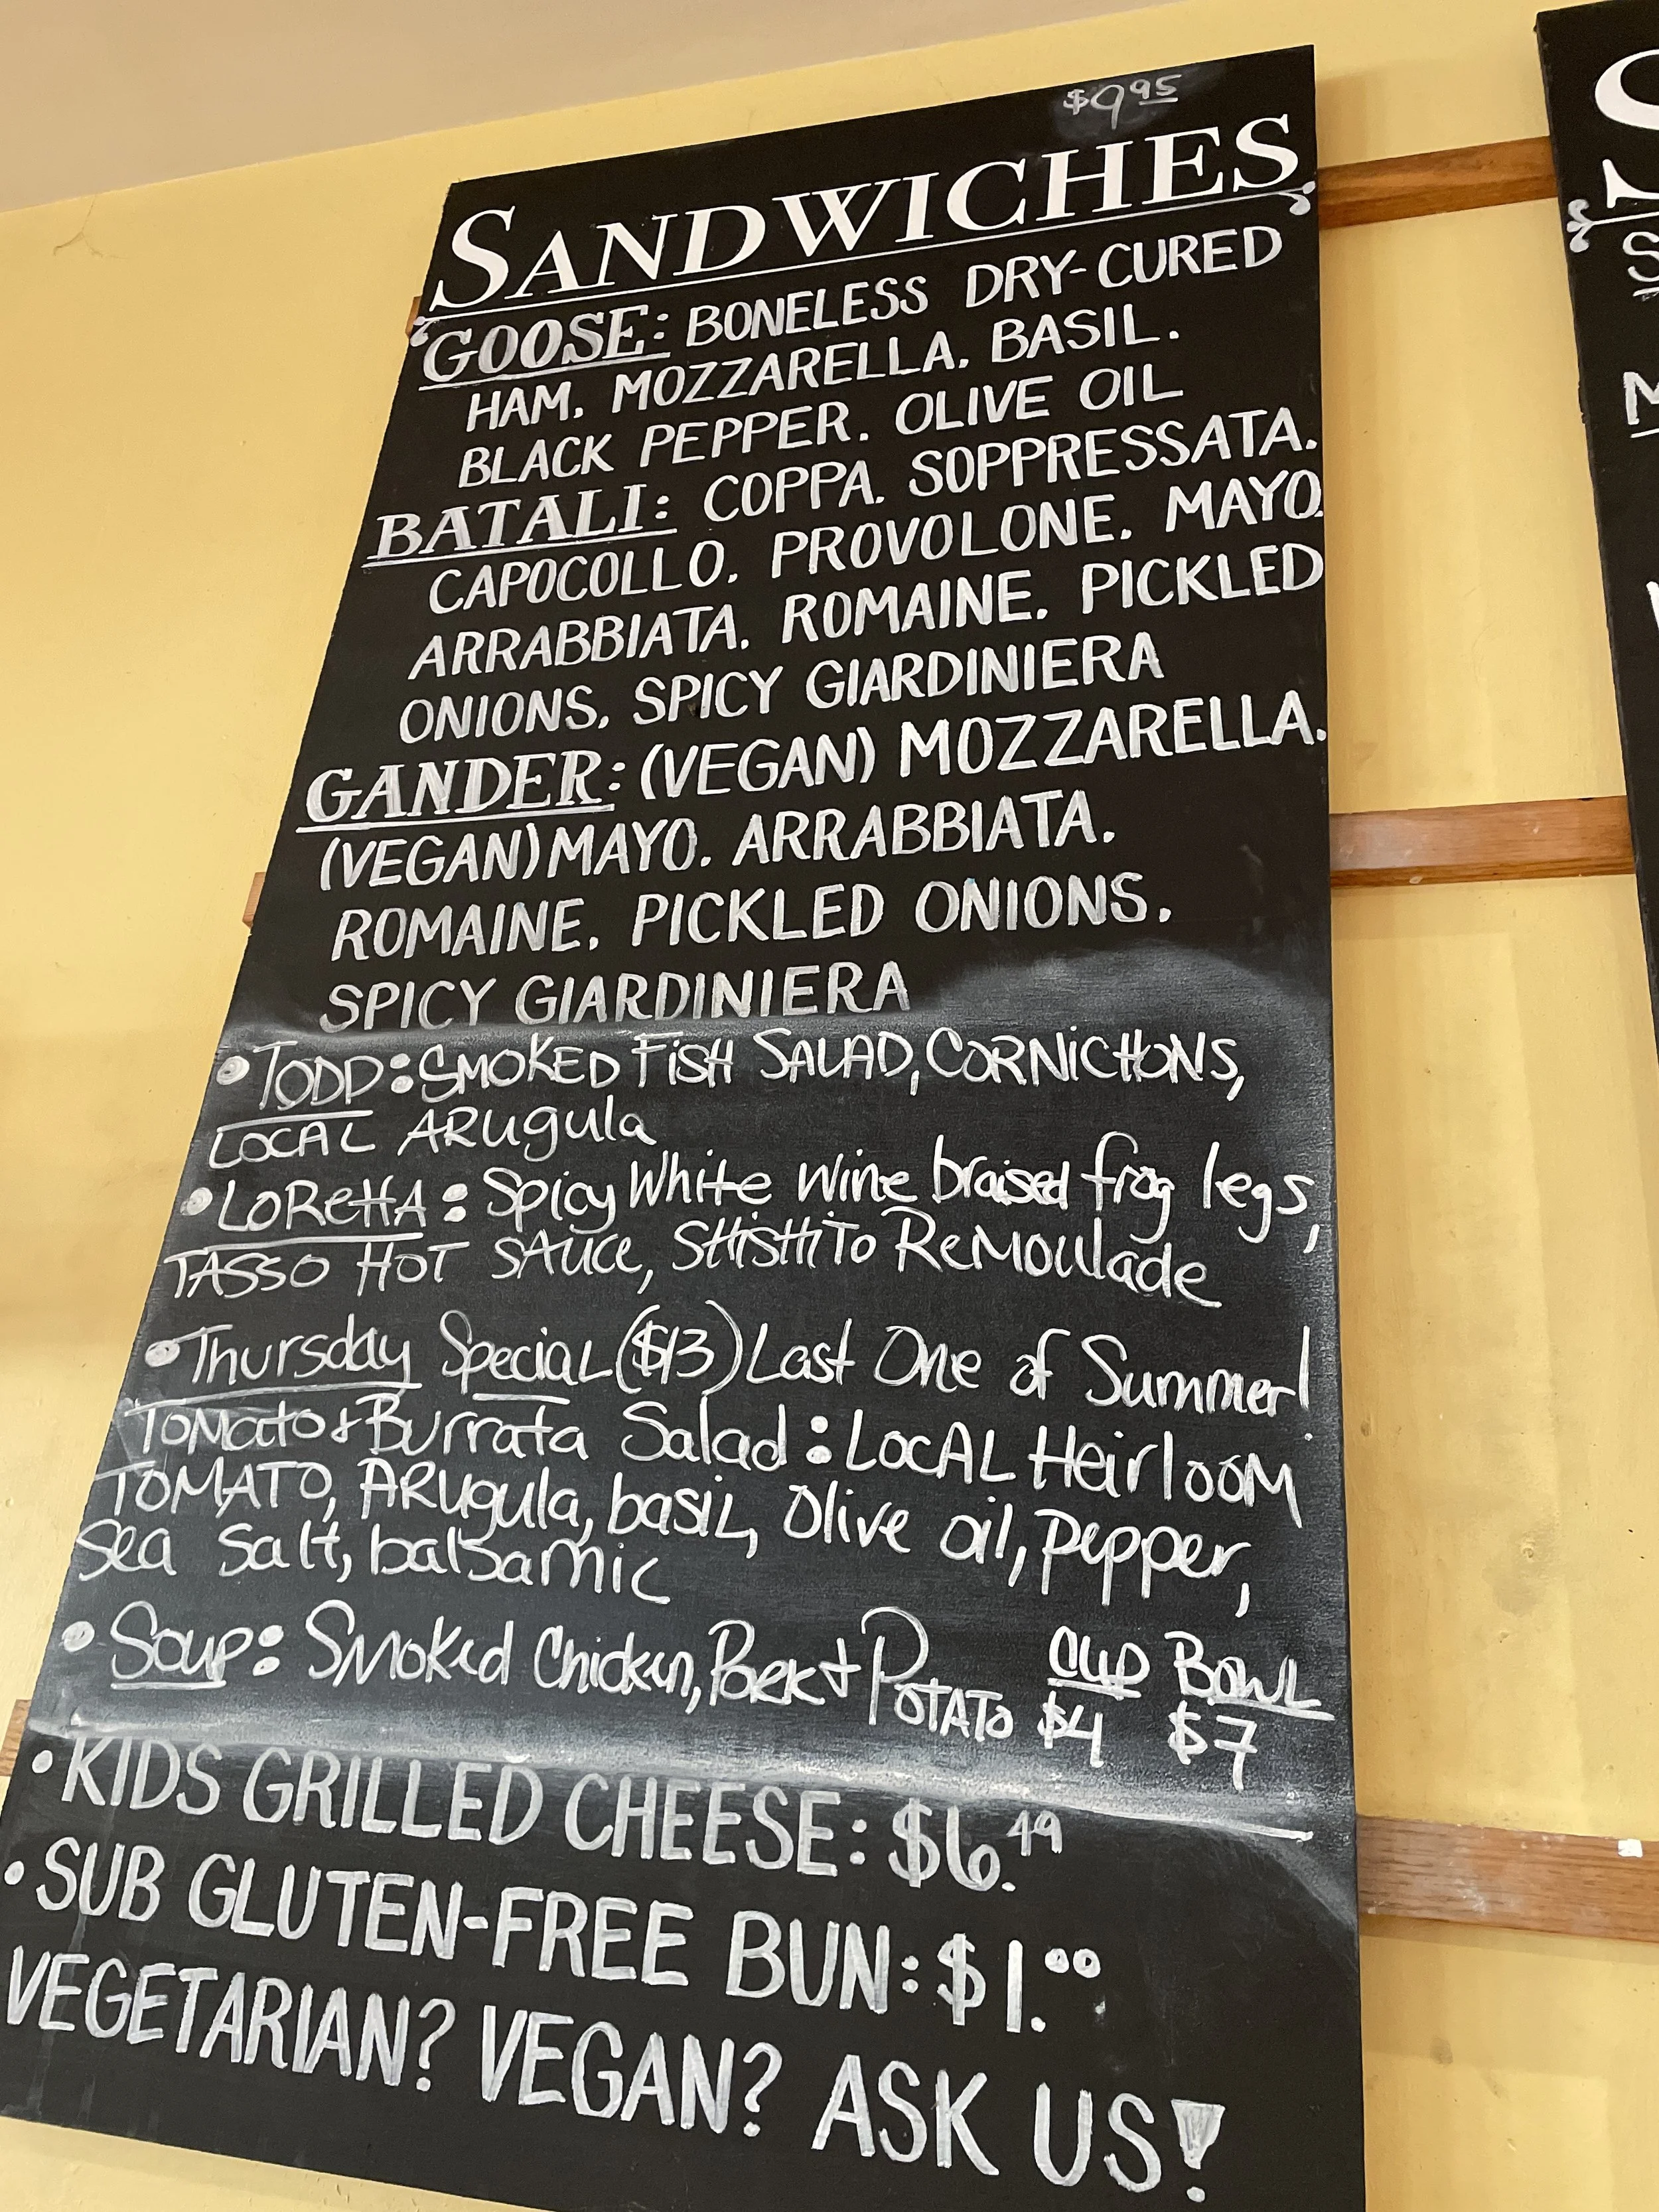 $9.95
SANDWICHES
GOOSE: BONELESS DRY-CURED
HAM. MOZZARELLA. BASIL.
BLACK PEPPER. OLIVE OIL
BATALI: COPPA. SOPPRESSATA.
CAPOCOLLO. PROVOLONE. MAYO.
ARRABBIATA. ROMAINE. PICKLED
ONIONS. SPICY GIARDINIERA
GANDER: (VEGAN) MOZZARELLA.
(VEGAN) MAYO. ARRABBIATA.
ROMAINE. PICKLED ONIONS.
SPICY GIARDINIERA
• TODD: SMOKED FiSH SALAD, CORNiCHONS,
LOCAL ARugula
• LOReTTA: Spicy White Wine braised frog legs,
TASSO HOT SAuce, SHiSHiTo ReMoulade
• Thursday Special ($13) Last One of Summer!
ToMato + Burrata Salad: LocAL HeirlooM
TOMATO, ARugula, basil, Olive oil, pepper,
Sea Salt, balsamic
• Soup: Smoked Chicken, Pork + PoTATo CUP $4 BOWL $7
• KIDS GRILLED CHEESE: $6.49
• SUB GLUTEN-FREE BUN: $1.00
VEGETARIAN? VEGAN? ASK US!